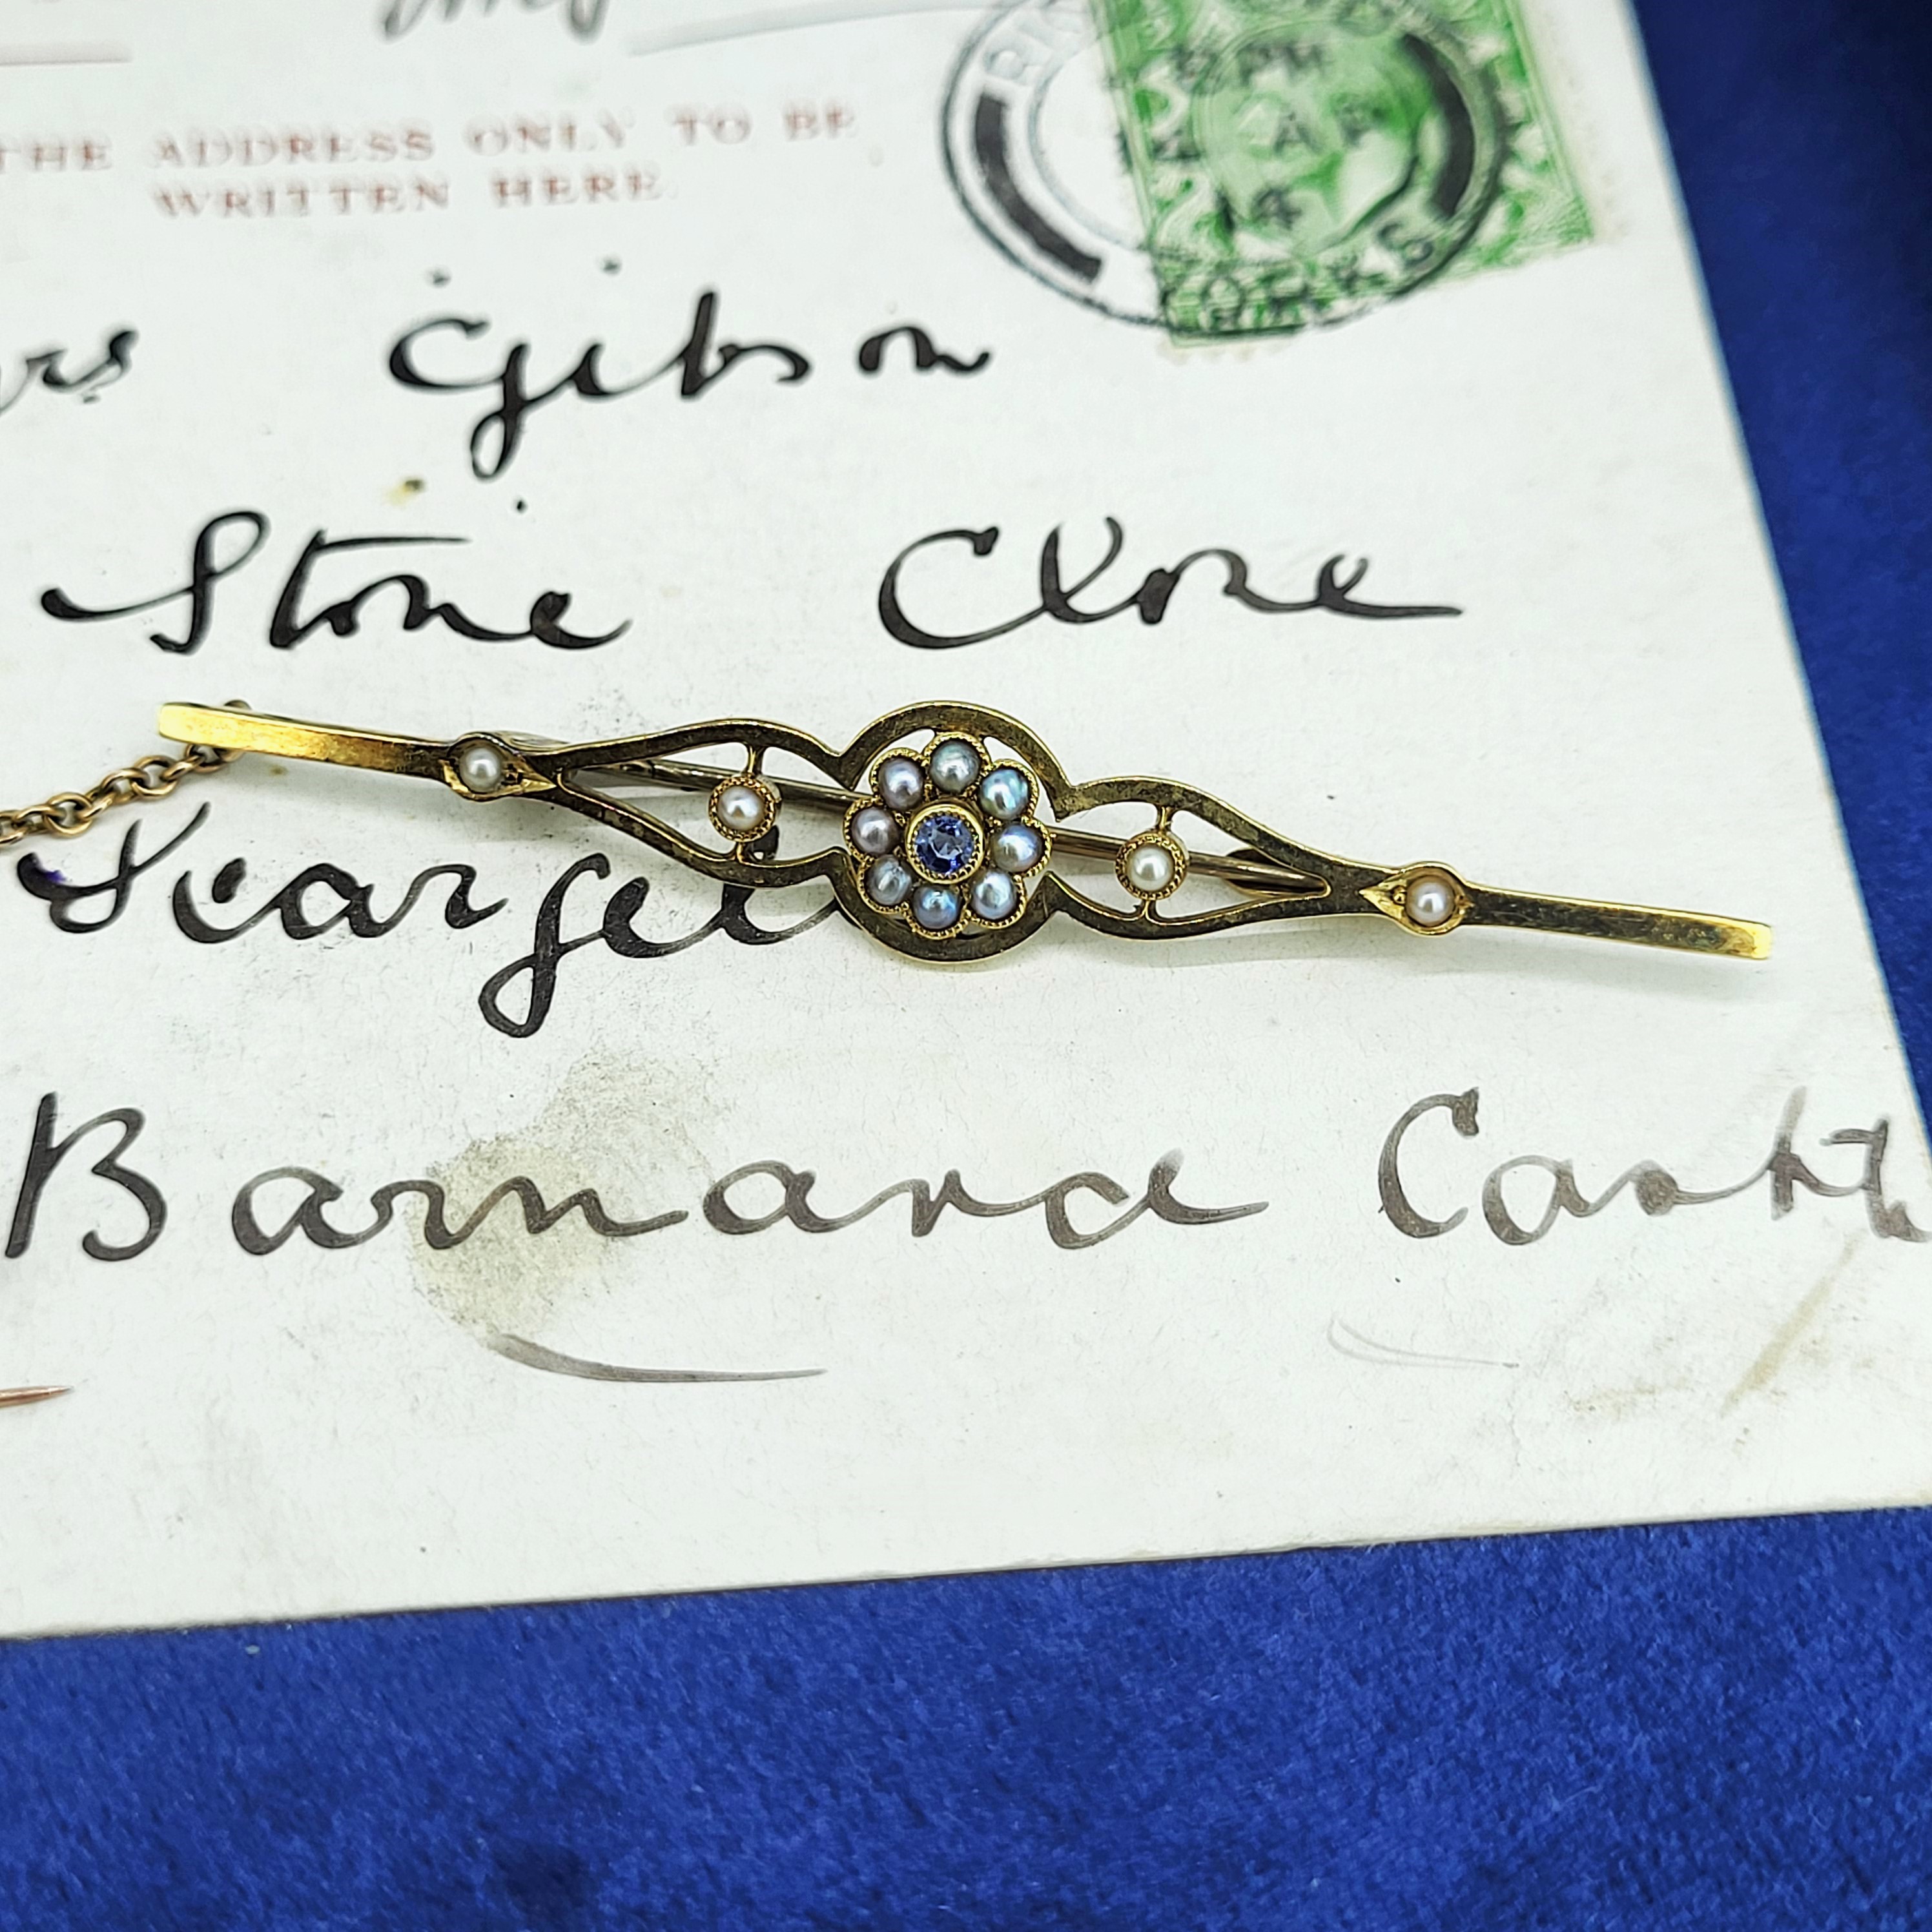 THE ADDRESS ONLY TO BE
WRITTEN HERE
8 PM
AP
14
YORKS
rs Gibson
Stone Close
Barnard Castle